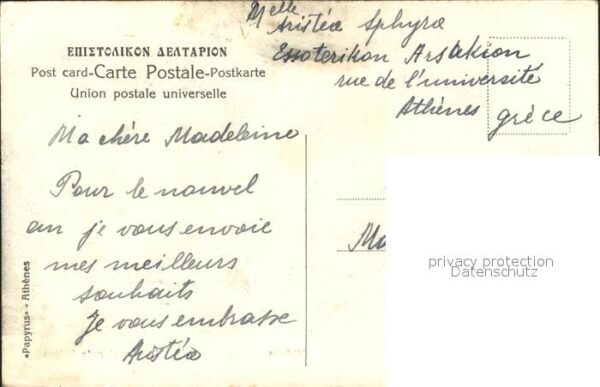 Melle
Aristéa Sphyra
Essoterikon Arsakion
rue de l'université
Athènes grèce
ΕΠΙΣΤΟΛΙΚΟΝ ΔΕΛΤΑΡΙΟΝ
Post card-Carte Postale-Postkarte
Union postale universelle
Ma chère Madeleine
Pour le nouvel
an je vous envoie
mes meilleurs
souhaits
Je vous embrasse
Aristéa
«Papyrus» - Athènes
privacy protection
Datenschutz